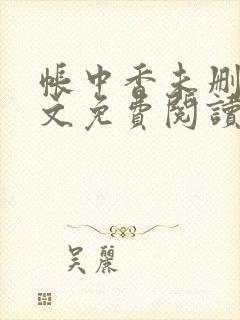 帳中香未删
文免費閱讀
吴麗